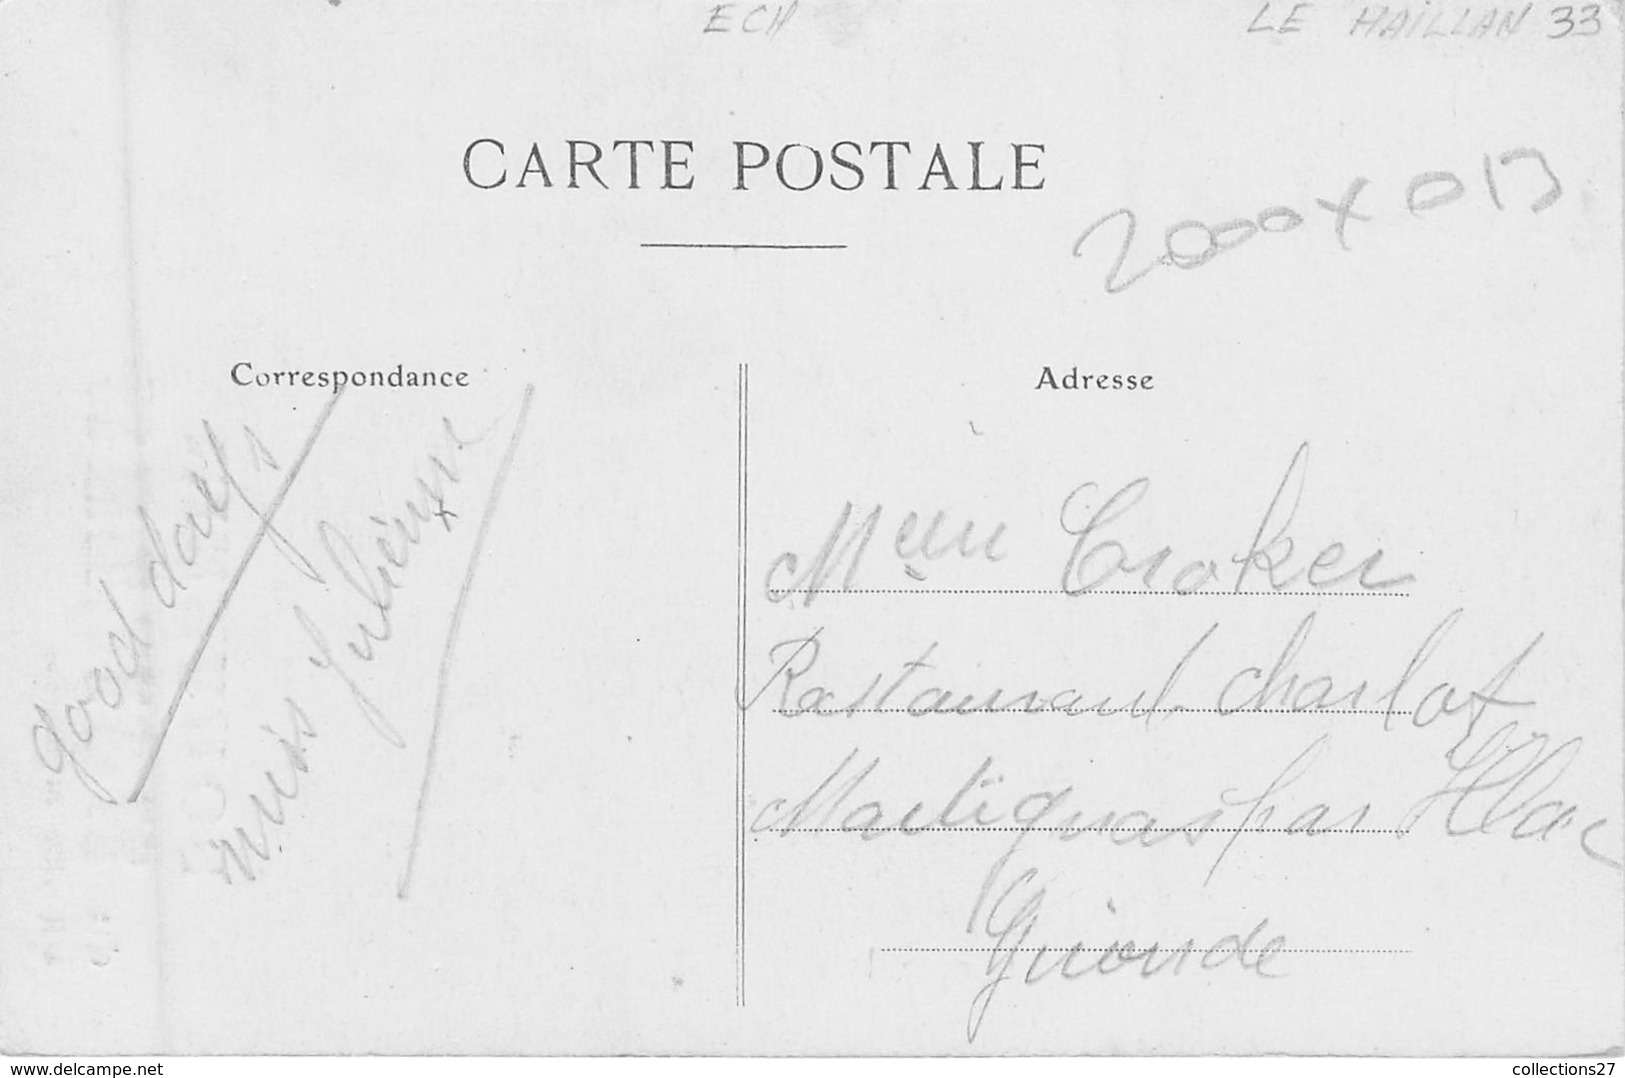 ECH
LE HAILLAN 33
CARTE POSTALE
2000 x 013
Correspondance
Adresse
good daifs
miss Julienne
Mme Croker
Restaurant charlot
Martignas par Illac
Gironde
www.delcampe.net
collections27